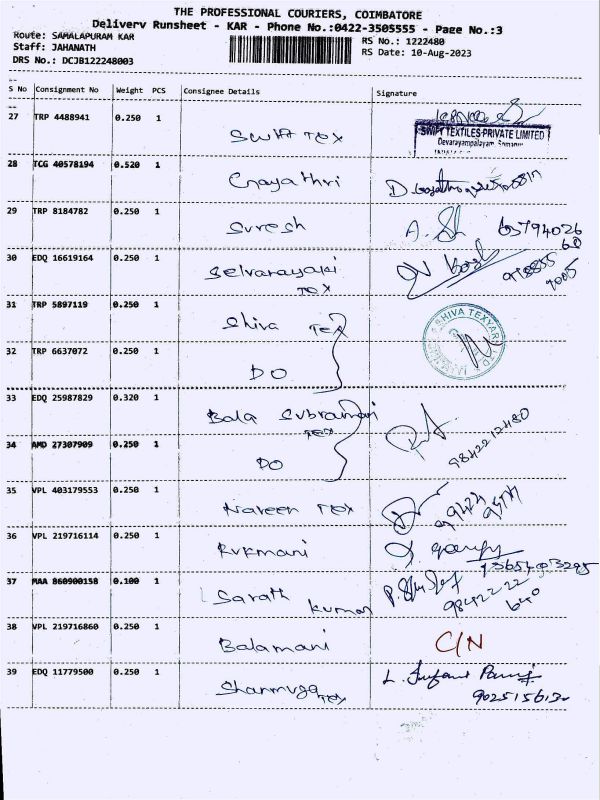 THE PROFESSIONAL COURIERS, COIMBATORE
Delivery Runsheet - KAR - Phone No.:0422-3505555 - Page No.:3
Route: SAMALAPURAM KAR
RS No.: 1222480
Staff: JAHANATH
RS Date: 10-Aug-2023
DRS No.: DCJB122248003
S No Consignment No Weight PCS Consignee Details Signature
27 TRP 4488941 0.250 1
Swift Tex
SWIFT TEXTILES PRIVATE LIMITED
Devarayampalayam, Somanur
28 TCG 40578194 0.520 1
Gayathri
29 TRP 8184782 0.250 1
Suresh
30 EDQ 16619164 0.250 1
Selvanayaki
Tex
31 TRP 5897119 0.250 1
Shiva Tex
32 TRP 6637072 0.250 1
DO
33 EDQ 25987829 0.320 1
Bala Subramani
Tex
34 AMD 27307909 0.250 1
DO
9842212480
35 VPL 403179553 0.250 1
Naveen Tex
36 VPL 219716114 0.250 1
Rukmani
37 MAA 860900158 0.100 1
Sarath
kumar
38 VPL 219716860 0.250 1
Balamani
C/N
39 EDQ 11779500 0.250 1
Shanmuga
Tex